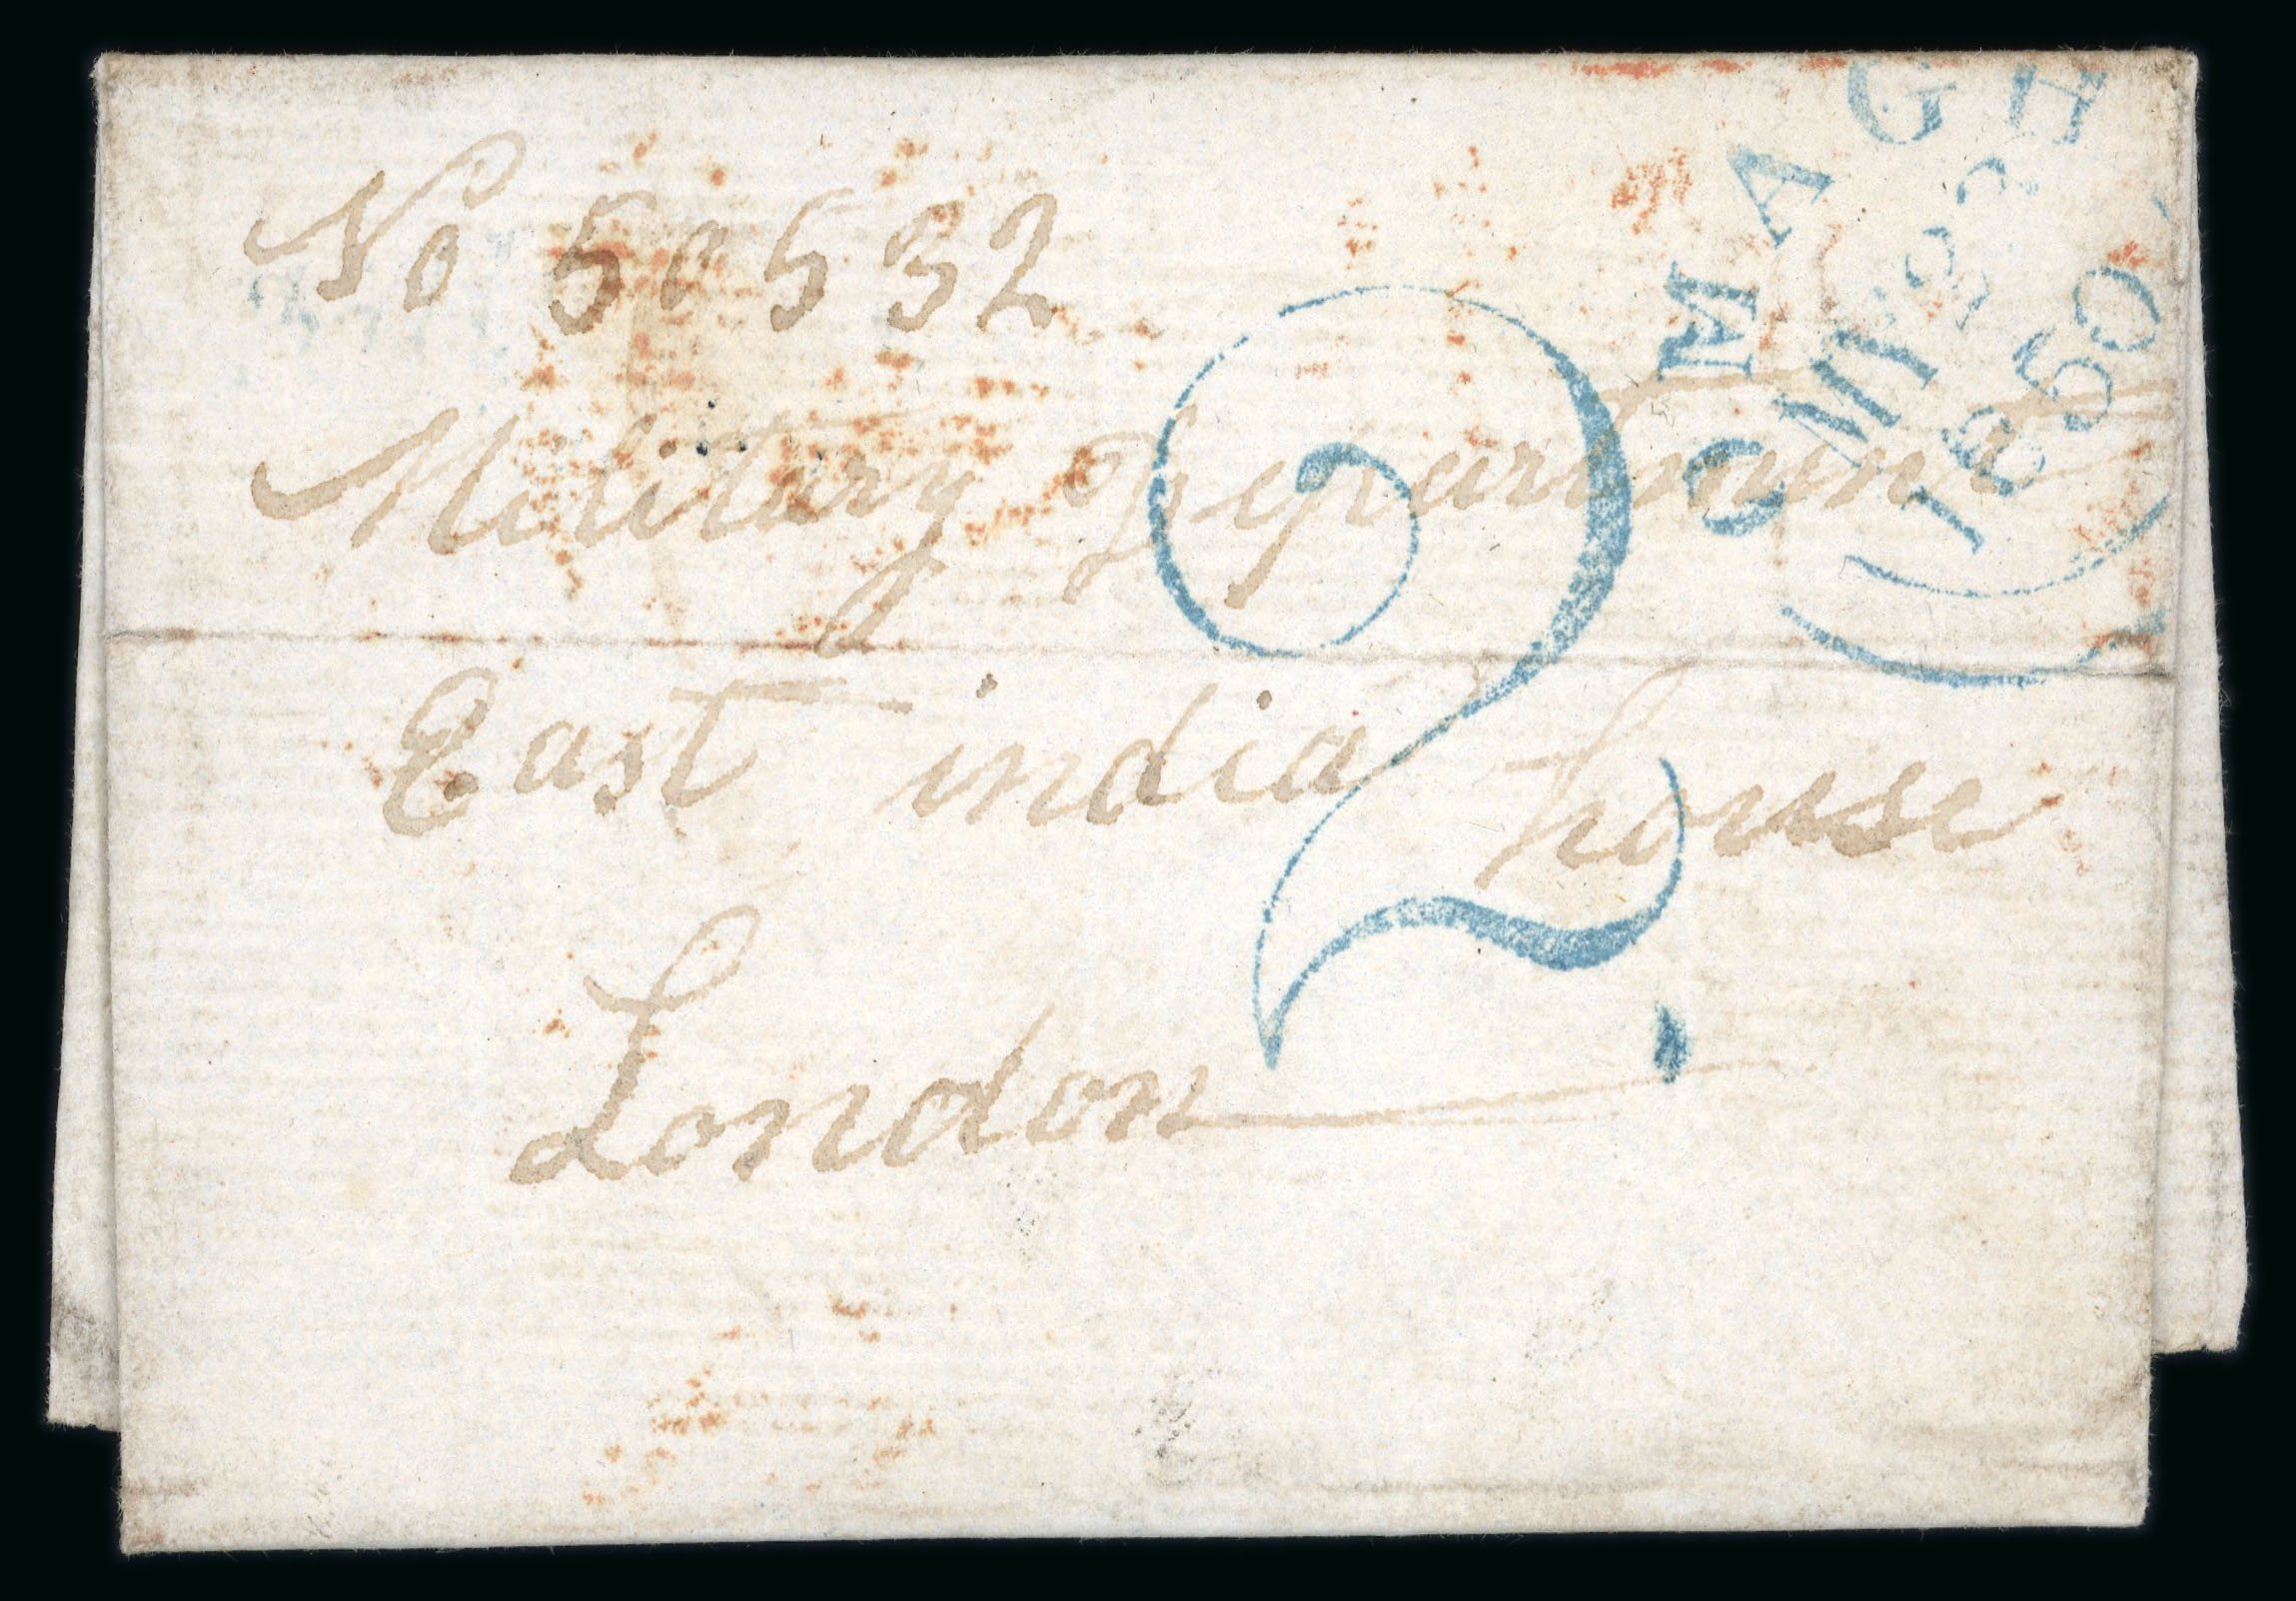 No 50532
Military Department
East india house
London
2
OMAGH
1850